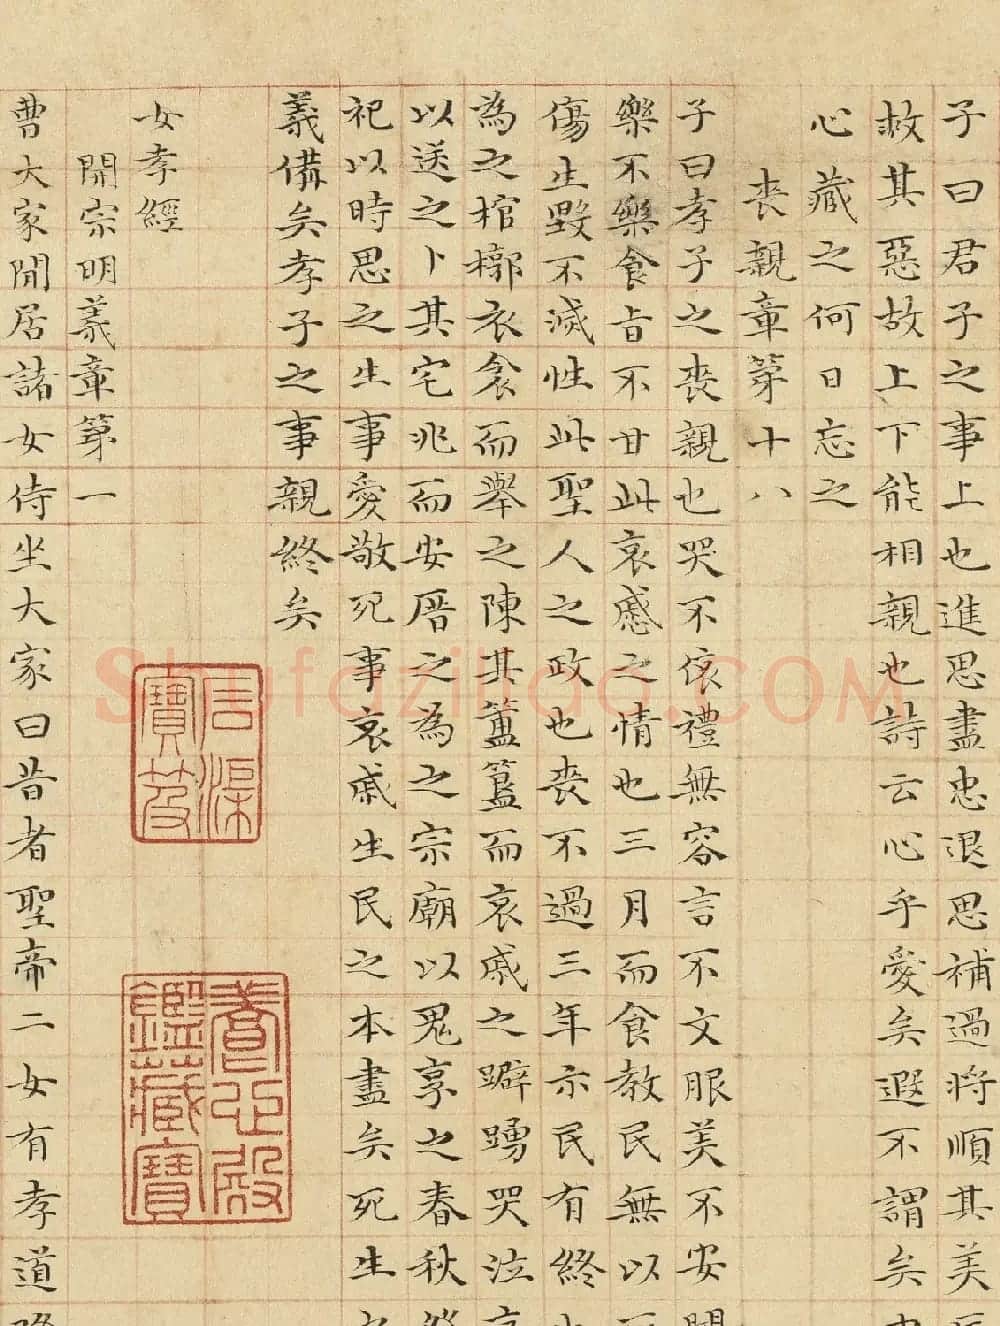 子曰君子之事上也進思盡忠退思補過將順其美
救其惡故上下能相親也詩云心乎愛矣遐不謂矣
心藏之何日忘之
喪親章第十八
子曰孝子之喪親也哭不偯禮無容言不文服美不安聞
樂不樂食旨不甘此哀慼之情也三月而食教民無以
傷生毀不滅性此聖人之政也喪不過三年示民有終
為之棺槨衣衾而舉之陳其簠簋而哀戚之躃踴哭泣哀
以送之卜其宅兆而安厝之為之宗廟以鬼享之春秋祭
祀以時思之生事愛敬死事哀戚生民之本盡矣死生之
義備矣孝子之事親終矣
石渠寶笈
養心殿鑑藏寶
女孝經
開宗明義章第一
曹大家閒居諸女侍坐大家曰昔者聖帝二女有孝道
Shufaziliao.COM